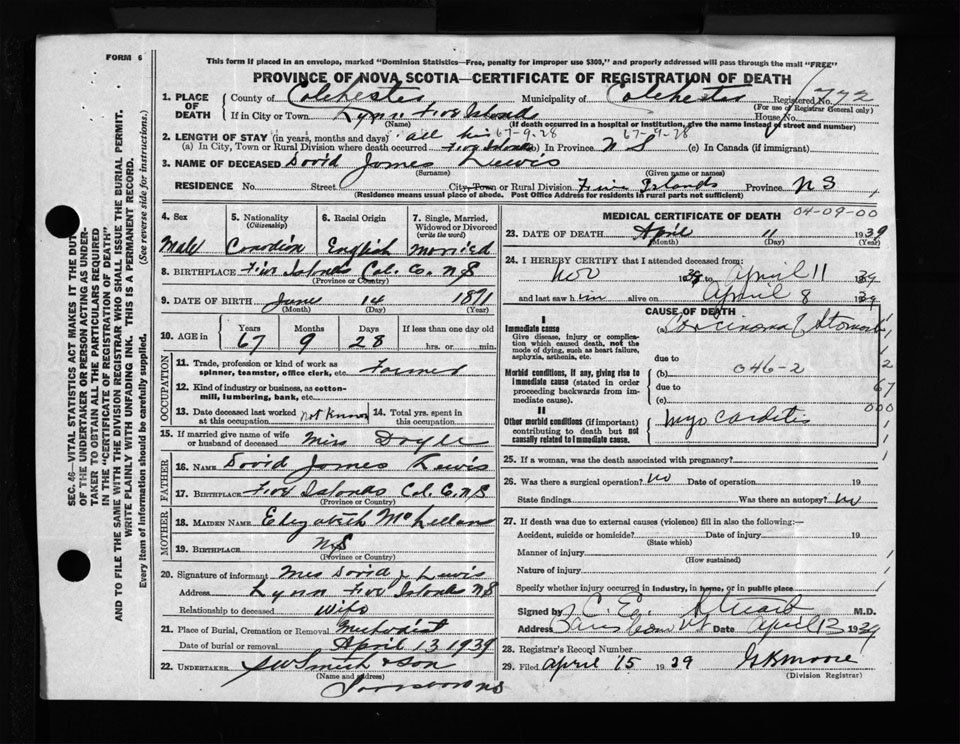 FORM 6
This form if placed in an envelope, marked "Dominion Statistics—Free, penalty for improper use $300," and properly addressed will pass through the mail "FREE"
PROVINCE OF NOVA SCOTIA—CERTIFICATE OF REGISTRATION OF DEATH
1. PLACE OF DEATH
County of Colchester Municipality of Colchester Registered No. 772
(For use of Registrar General only)
If in City or Town Lynn Five Islands House No.
(Name) (If death occurred in a hospital or institution, give the name instead of street and number)
2. LENGTH OF STAY (in years, months and days) all his 67-9-28 67-9-28
(a) In City, Town or Rural Division where death occurred Five Islands (b) In Province N S (c) In Canada (if immigrant)
3. NAME OF DECEASED David James Lewis
(Surname) (Given name or names)
RESIDENCE No. Street City, Town or Rural Division Five Islands Province N S
(Residence means usual place of abode. Post Office Address for residents in rural parts not sufficient)
4. Sex
Male
5. Nationality (Citizenship)
Canadian
6. Racial Origin
English
7. Single, Married, Widowed or Divorced (write the word)
Married
8. BIRTHPLACE Five Islands Col. Co. N S
(Province or Country)
9. DATE OF BIRTH June 14 1871
(Month) (Day) (Year)
10. AGE in
Years Months Days If less than one day old
67 9 28 hrs. or min.
OCCUPATION
11. Trade, profession or kind of work as spinner, teamster, office clerk, etc. Farmer
12. Kind of industry or business, as cotton-mill, lumbering, bank, etc.
13. Date deceased last worked at this occupation Not Known
14. Total yrs. spent in this occupation
15. If married give name of wife or husband of deceased Miss Doyle
FATHER
16. NAME David James Lewis
17. BIRTHPLACE Five Islands Col. Co. N S
(Province or Country)
MOTHER
18. MAIDEN NAME Elizabeth McLellan
19. BIRTHPLACE N S
(Province or Country)
20. Signature of informant Mrs David J Lewis
Address Lynn Five Islands N S
Relationship to deceased Wife
21. Place of Burial, Cremation or Removal Methodist
Date of burial or removal April 13 1939
22. UNDERTAKER Smith & Son
(Name and address)
N S
MEDICAL CERTIFICATE OF DEATH
04-09-00
23. DATE OF DEATH April 11 1939
(Month) (Day) (Year)
24. I HEREBY CERTIFY that I attended deceased from:
Nov 1938 April 11 1939
and last saw him alive on April 8 1939
CAUSE OF DEATH
I
Immediate cause
Give disease, injury or complication which caused death, not the mode of dying, such as heart failure, asphyxia, asthenia, etc.
(a) Carcinoma of Stomach
due to
Morbid conditions, if any, giving rise to immediate cause (stated in order proceeding backwards from immediate cause).
(b) 046-2
due to
(c)
2
67
000
II
Other morbid conditions (if important) contributing to death but not causally related to immediate cause.
Myocarditis
25. If a woman, was the death associated with pregnancy?
26. Was there a surgical operation? No Date of operation 19
State findings Was there an autopsy? No
27. If death was due to external causes (violence) fill in also the following:—
Accident, suicide or homicide? Date of injury 19
(State which)
Manner of injury
(How sustained)
Nature of injury
Specify whether injury occurred in industry, in home, or in public place
Signed by C. E. Stuart M.D.
Address Date April 13 1939
28. Registrar's Record Number
29. Filed April 15 1939 G K Moore
(Division Registrar)
SEC. 46—VITAL STATISTICS ACT MAKES IT THE DUTY OF THE UNDERTAKER OR PERSON ACTING AS UNDERTAKER TO OBTAIN ALL THE PARTICULARS REQUIRED IN THE "CERTIFICATE OF REGISTRATION OF DEATH" AND TO FILE THE SAME WITH THE DIVISION REGISTRAR WHO SHALL ISSUE THE BURIAL PERMIT.
WRITE PLAINLY WITH UNFADING INK. THIS IS A PERMANENT RECORD.
Every item of information should be carefully supplied. (See reverse side for instructions.)